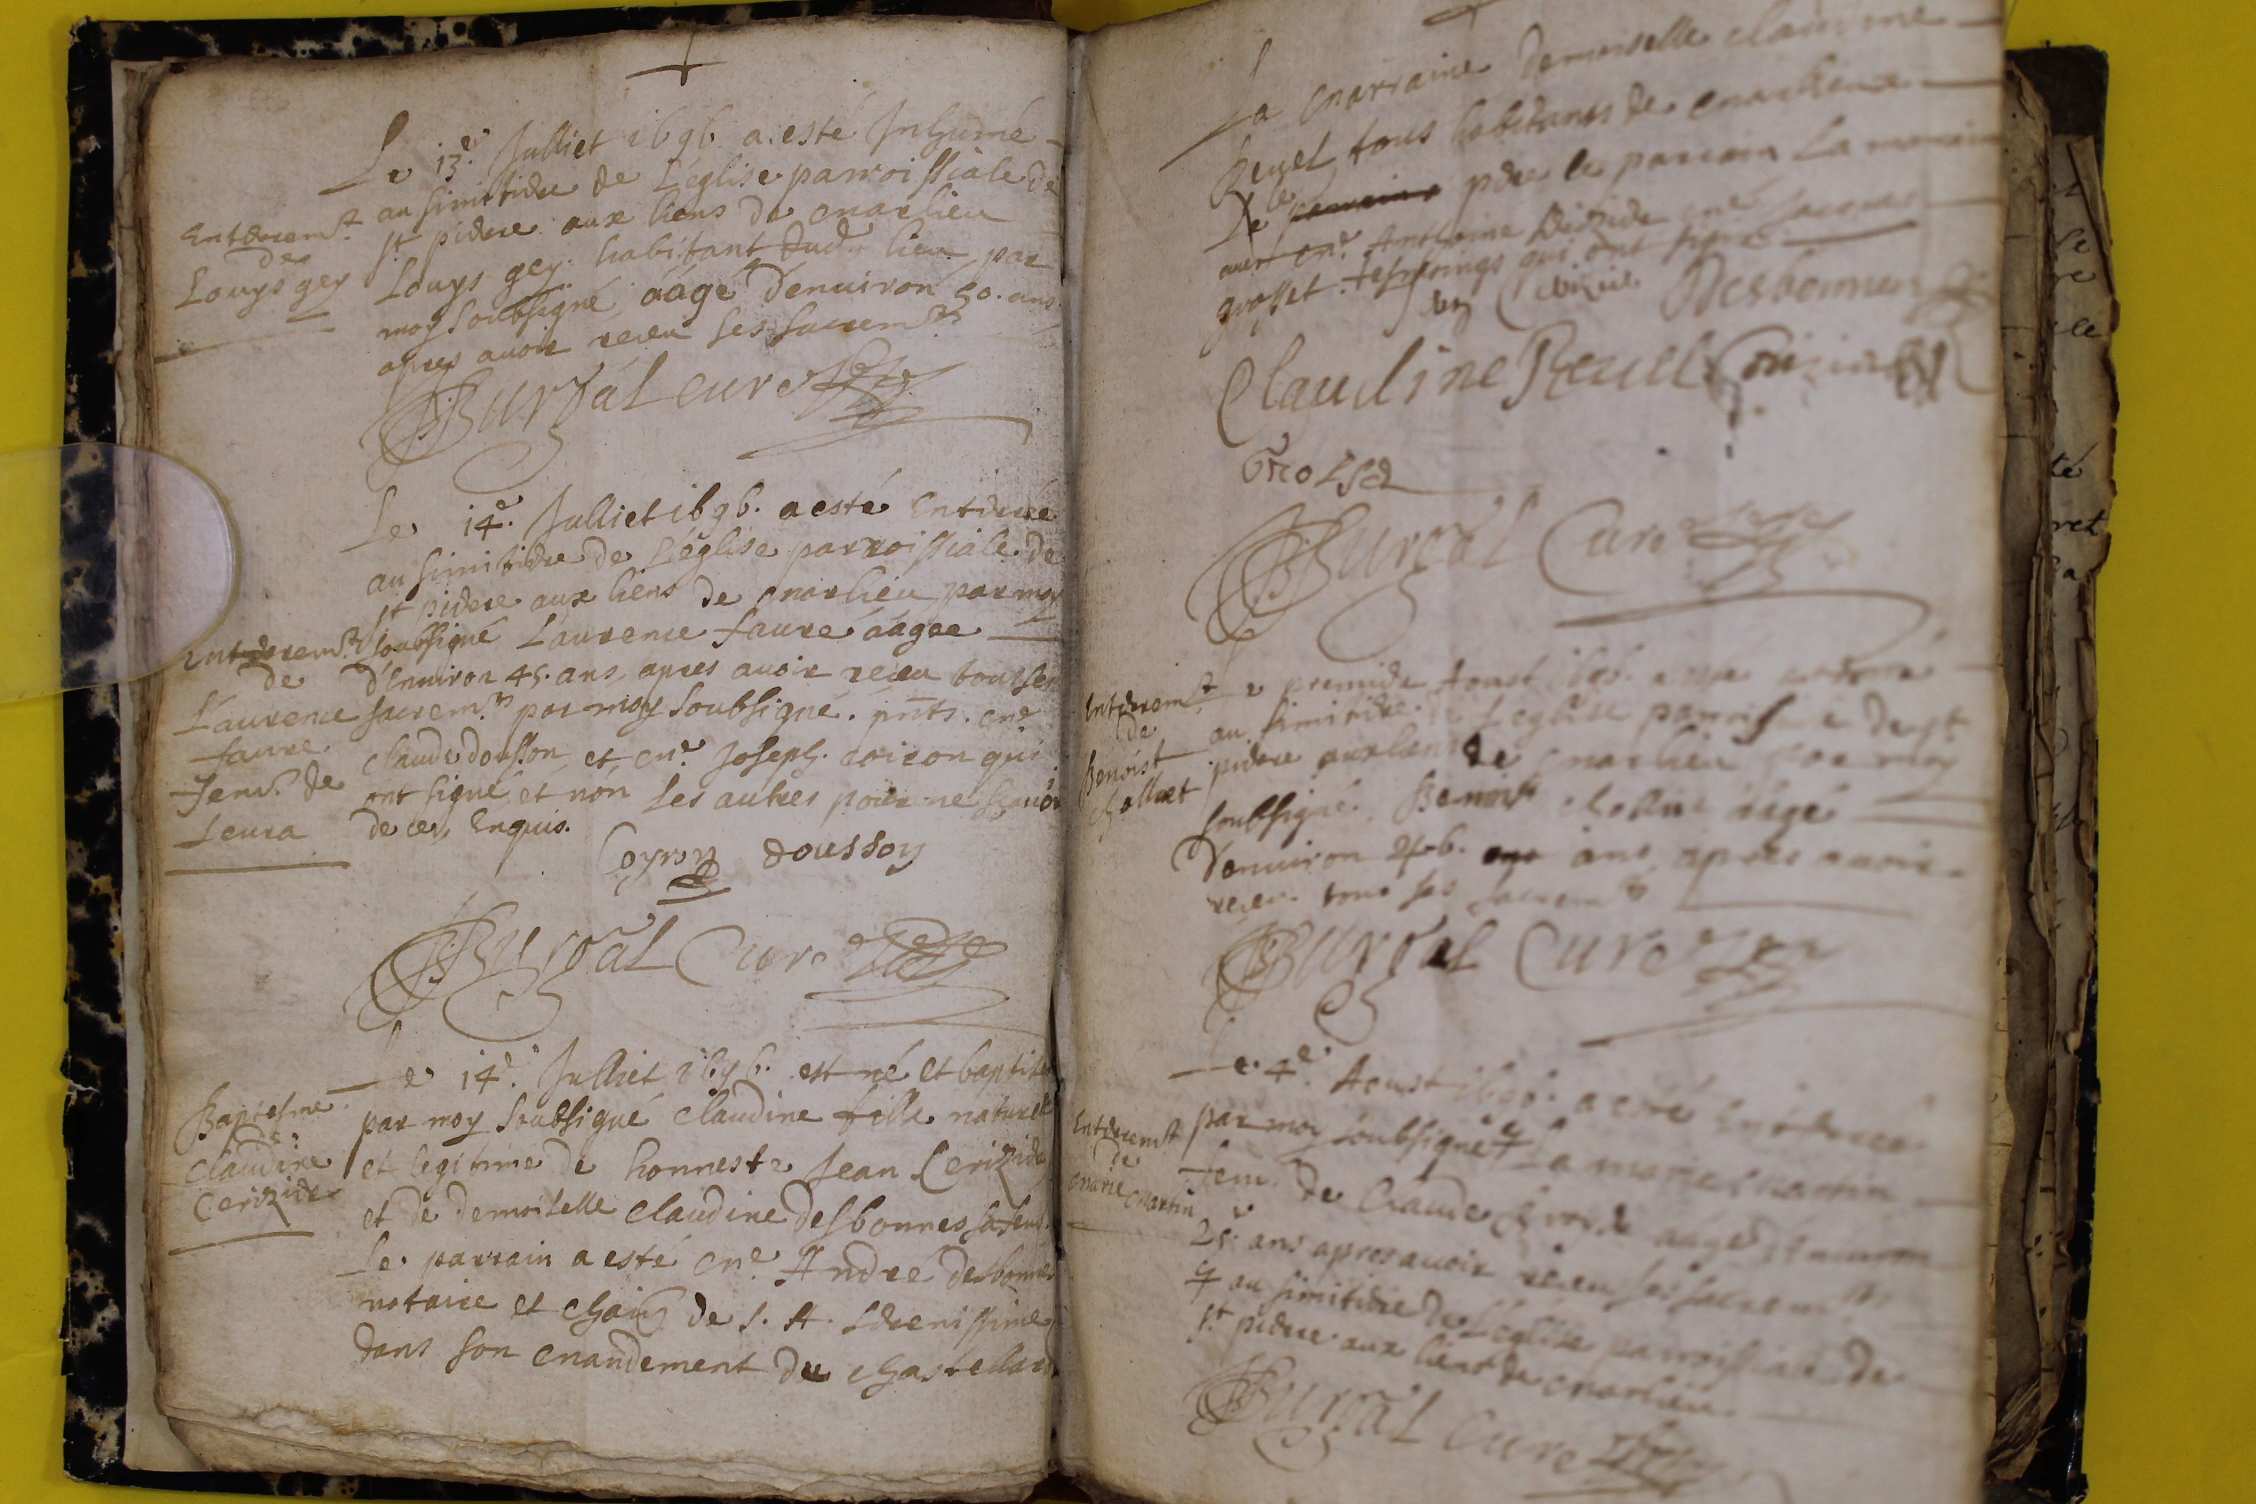 Le 13.e Julliet 1696 a. esté Inhumé
au simitidre de L'église parroissiale de
st pidere aux liens de Marlieu
Louys gey. habitant dud.t lieu par
moy soubsigné, áágé d'enuiron 50. ans
apres auoir receu ses sacrem.ts
Entdrem.t
de
Louys gey
Burgal curé
Le 14.e Julliet 1696. a esté Entdrée
au simitidre de L'église parroissiale de
st pidere aux liens de Marlieu par moy
soubsigné Laurence faure áágée
d'Enuiron 45. ans, apres auoir receu tous ses
sacrem.ts par moy soubsigné. pnts. Me
claude dousson et Me Joseph. coiron qui
ont signé et non Les autres pour ne scauoir
de ce, Enquis.
Entdrem.t
de
Laurence
faure
fem.e de
Leura
Coyron doussoy
Burgal Curé
Le 14.e Julliet 1696. est né et baptisé
par moy soubsigné claudine fille naturele
et legitime de honneste Jean Cerizide
et de demoiselle claudine desbonnes sa fem.
Le. parrain a esté Me André desbonnes
notaire et de S. A. Sdrenissime
dans son Mandement du chastellard
Baptesme
de
claudine
Cerizide
La Marraine demoiselle claudine
Reuel tous habitants de Marlieux
Le pdre le parrain La marraine
auec Me Anthoine Me Jacques
grosset. tesmoings qui ont signé.
Desbonnes
Claudine Reuel
Grosset
Burgal Curé
Le premide Aoust 1696. a esté
au simitidre de L'eglise parroissi e de st
pidere aux liens de Marlieu par moy
soubsigné. Benoist chollet áágé
d'enuiron 46. ans apres auoir
receu tous ses sacrem.ts
Entdrem.t
de
Benoist
chollet
Burgal Curé
Le. 4.e Aoust 1696. a esté Entdree
par moy soubsigné La marie Martin
fem. de Claude áágé d'Enuiron
25. ans apres auoir receu ses sacrem.ts
au simitidre de L'église parroissiale de
st pidere aux liens de Marlieu.
Entdrem.t
de
Marie Martin
Burgal curé